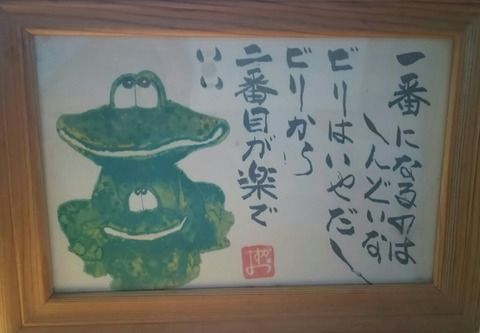 一番になるのは
しんどいな
ビリはいやだし
ビリから
二番目が楽で
いい